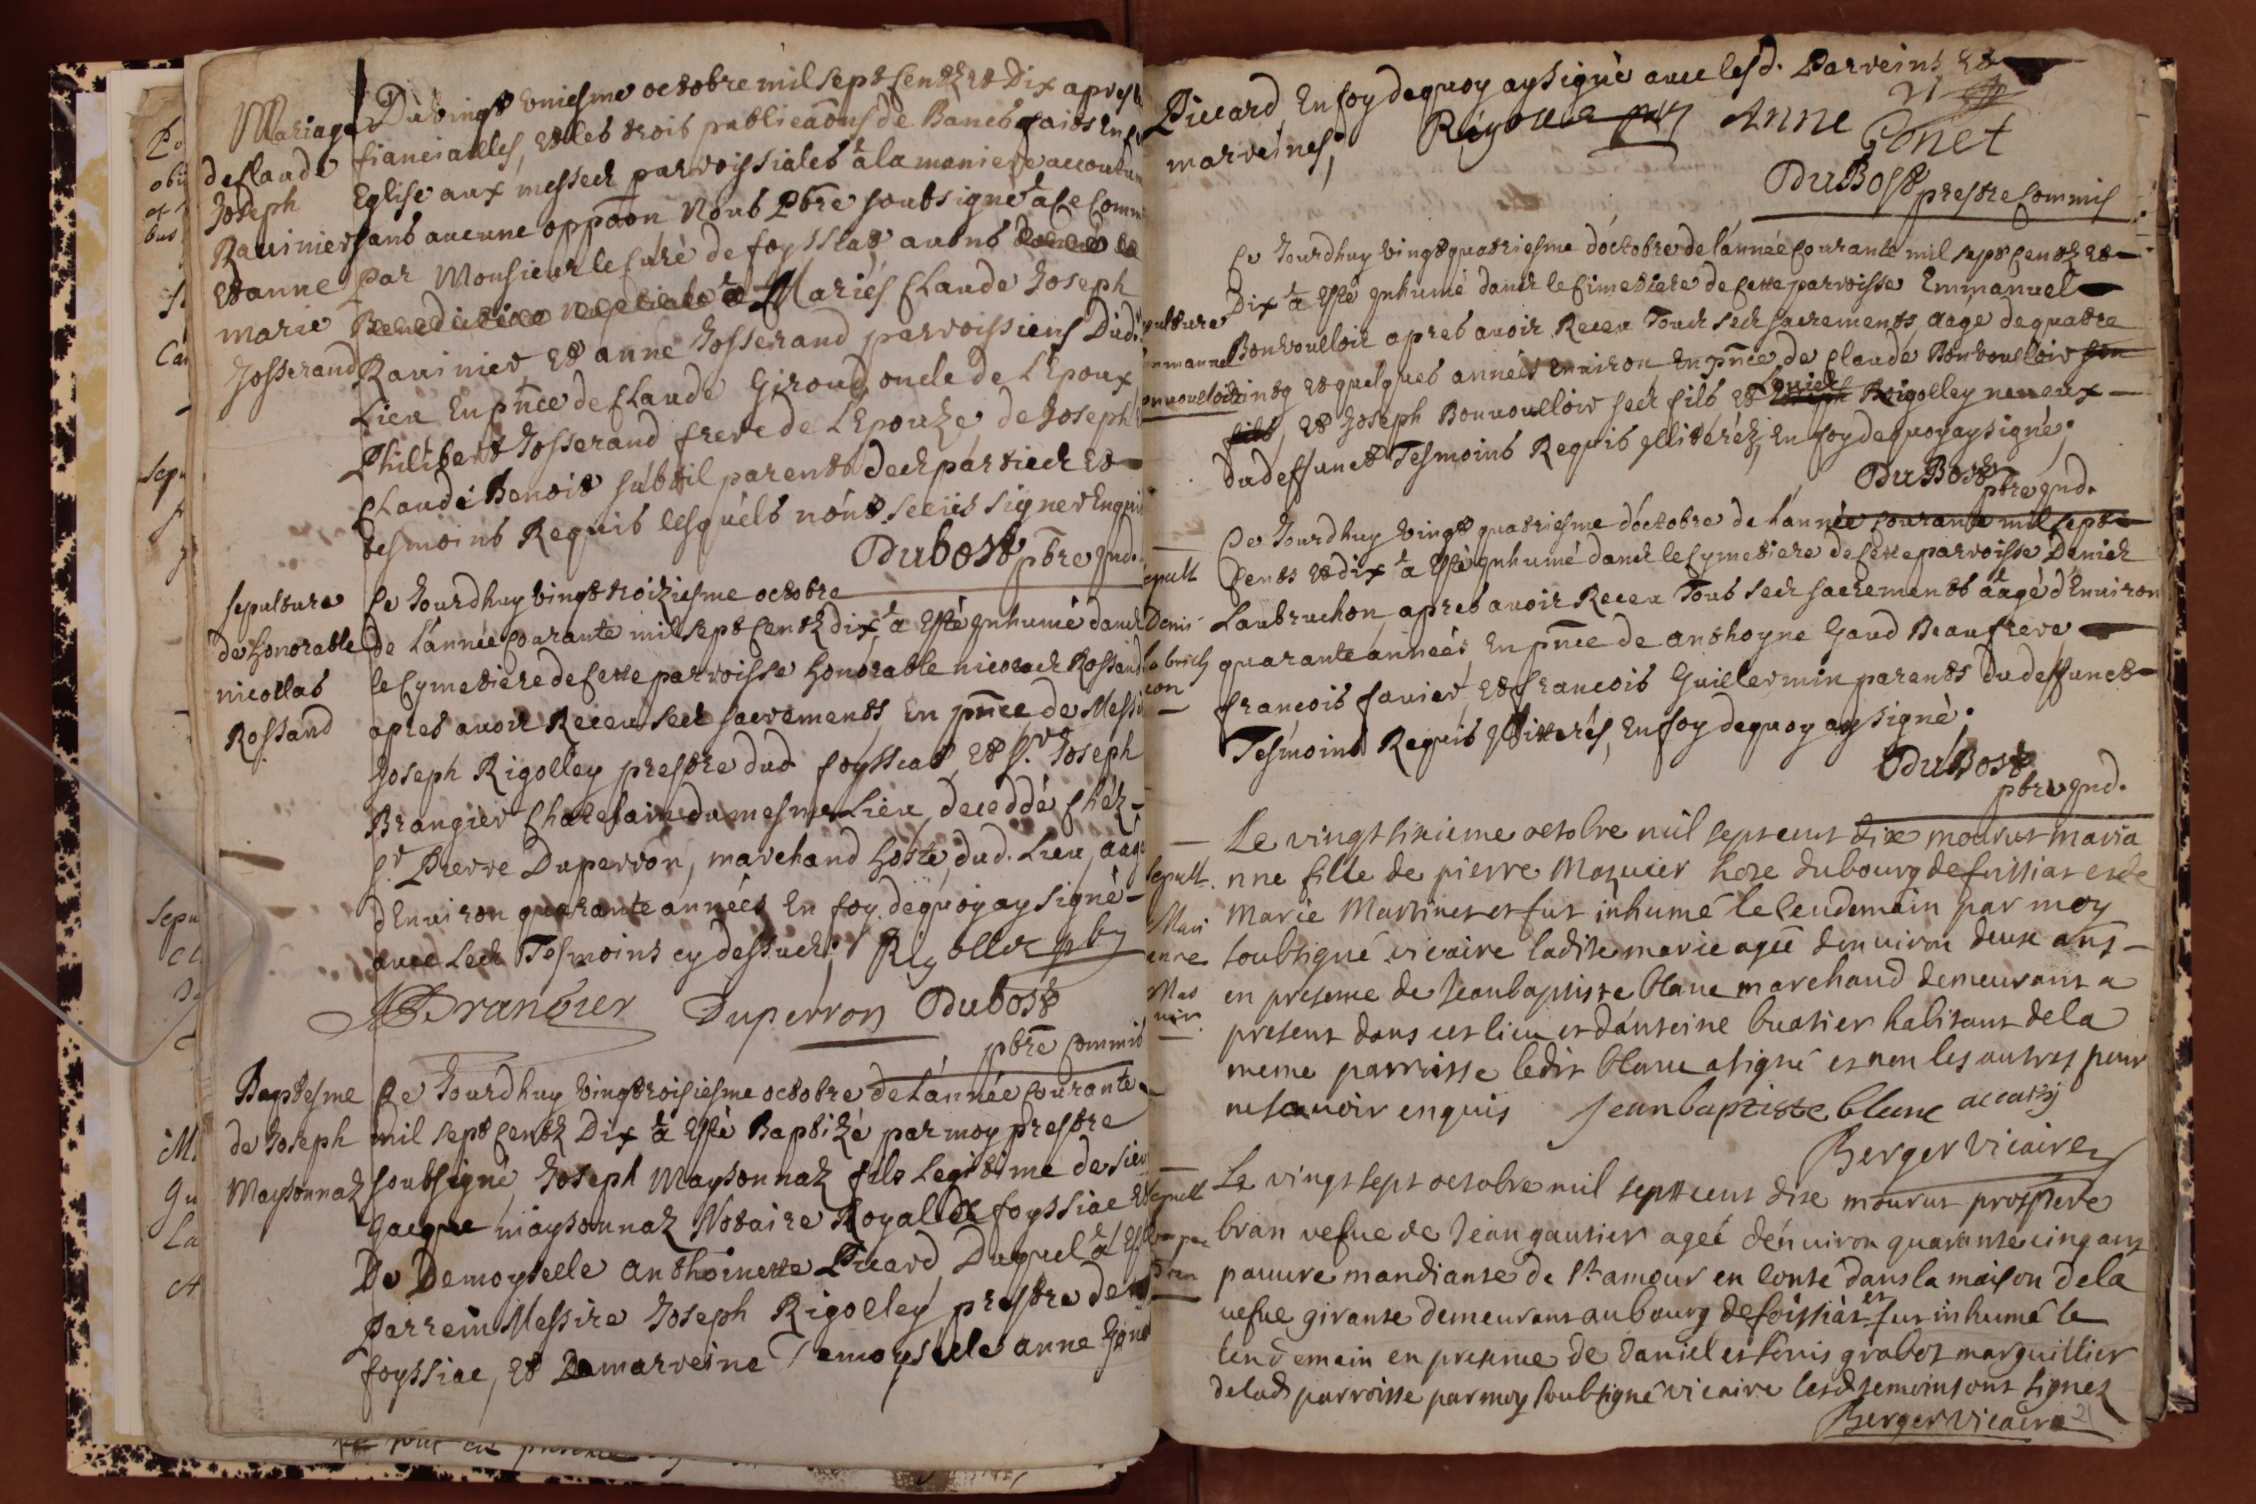 Mariage
de Claude
Joseph
Ravinier
Et anne
marie
Josserand
Du vingt Uniesme octobre mil sept Centz et Dix apres
fianciailles, et les trois publicaons de Bancs faits En
Eglise aux messes parroissiales à la maniere accoutu
sans aucune oppaon Nous Pbre soubsigné à Ce Comm
par Monsieur le Curé de foyssiat avons donné la
Benediction nuptiale à Mariés Claude Joseph
Ravinier Et anne Josserand parroissiens Dud.
Lieu En pnce de Claude Giroud oncle de L'Epoux
Philibert Josserand frere de L'Epouze de Joseph
Claude Benoit subtil parents des parties Et
tesmoins Requis lesquels n'ont sceus signer Enquis
Dubost pbre gnd.
sepulture
de honorable
nicollas
Rossand
Ce Jourdhuy vingt troiziesme octobre
de L'année Courante mil sept Centz dix à Esté Inhumé dans
le Cymetiere de Cette parroisse honorable nicolas Rossand
apres avoir Receu ses sacrements, En pnce de Messi
Joseph Rigolley prestre dud foyssiat, Et Sr. Joseph
Brangier Chatelain du mesme Lieu, deceddé chéz
Sr Pierre Duperron, marchand hoste, dud. Lieu, aagé
d'Environ quarante années En foy dequoy ay signé
avec Les Tesmoins cy dessus; Rigolley pbr
Brangier Duperron Dubost
pbre Commis
Baptesme
de Joseph
Maysonnaz
Ce Jourdhuy Vingtroisiesme octobre de L'année Courante
mil sept Centz Dix à Esté Baptizé par moy prestre
soubsigné, Joseph Maysonnaz fils legitime de sieu
Jacque maysonnaz Notaire Royal de foyssiac Et
De Demoyselle anthoinette Picard, Duquel à Esté
parrein Messire Joseph Rigolley, prestre de
foyssiac, Et La marreine Demoyselle anne Gonet
Piccard, En foy dequoy ay signé avec lesd. Parreins Et
marreines; Rigolley pbr Anne Gonet
DuBost prestre Commis
Ce Jourdhuy vingt quatriesme d'octobre de l'année Courante mil sept Centz Et
Dix à Esté Inhumé dans le Cimettiere de Cette parroisse Emmanuel
Bonvoulloir apres avoir Receu Tous ses sacrements aage de quatre
vingt et quelques années Environ En pnce de Claude Bonvoulloir son
fils, Et Joseph Bonvoulloir ses fils, Et Joseph Rigolley neveux
Louis
du deffunct Tesmoins Requis Illiteréz, En foy dequoy ay signé;
DuBost
pbre gnd.
sepult
Denis
Labruch
con
Ce Jourdhuy Vingt quatriesme d'octobre de L'année Courante mil sept
Cents et dix à Esté Inhumé dans le Cymetiere de Cette parroisse Denis
Laubruchon, apres avoir Receu Tous ses sacrements aagé d'Environ
quarante années, En pnce de anthoyne Gaud Beaufrere
francois favier, Et francois Guillermin parents du deffunct
Tesmoins Requis Illitterés, En foy dequoy ay signé.
DuBost
pbre gnd.
Sepult.
Mari
enne
Maz
uir
Le vingt sixieme octobre mil sept cent dix mourut Maria
nne fille de pierre Mazuier hote du bourg de foissiat et de
Marie Martinet et fut inhumé le lendemain par moy
soubsigné vicaire ladite marie agée d'environ deux ans
en presence de Jean baptiste blanc marchand demeurant a
present dans cet lieu et d'antoine buatier habitant de la
meme parroisse ledit blanc a signé et non les autres pour
ne scavoir enquis Jean baptiste blanc accarij
Berger Vicaire
Sepult
Le vingt sept octobre mil sept cent dix mourut prospere
bran vefue de Jean gautier ageé d'environ quarante cinq ans
pauvre mandiante de st amour en Conté dans la maison de la
vefue girante demeurant au bourg de foissiat et fut inhumé le
lendemain en presence de daniel et Louis grabot marguillier
de lad parroisse par moy soubsigné vicaire lesd temoins ont signez
Berger Vicaire
21